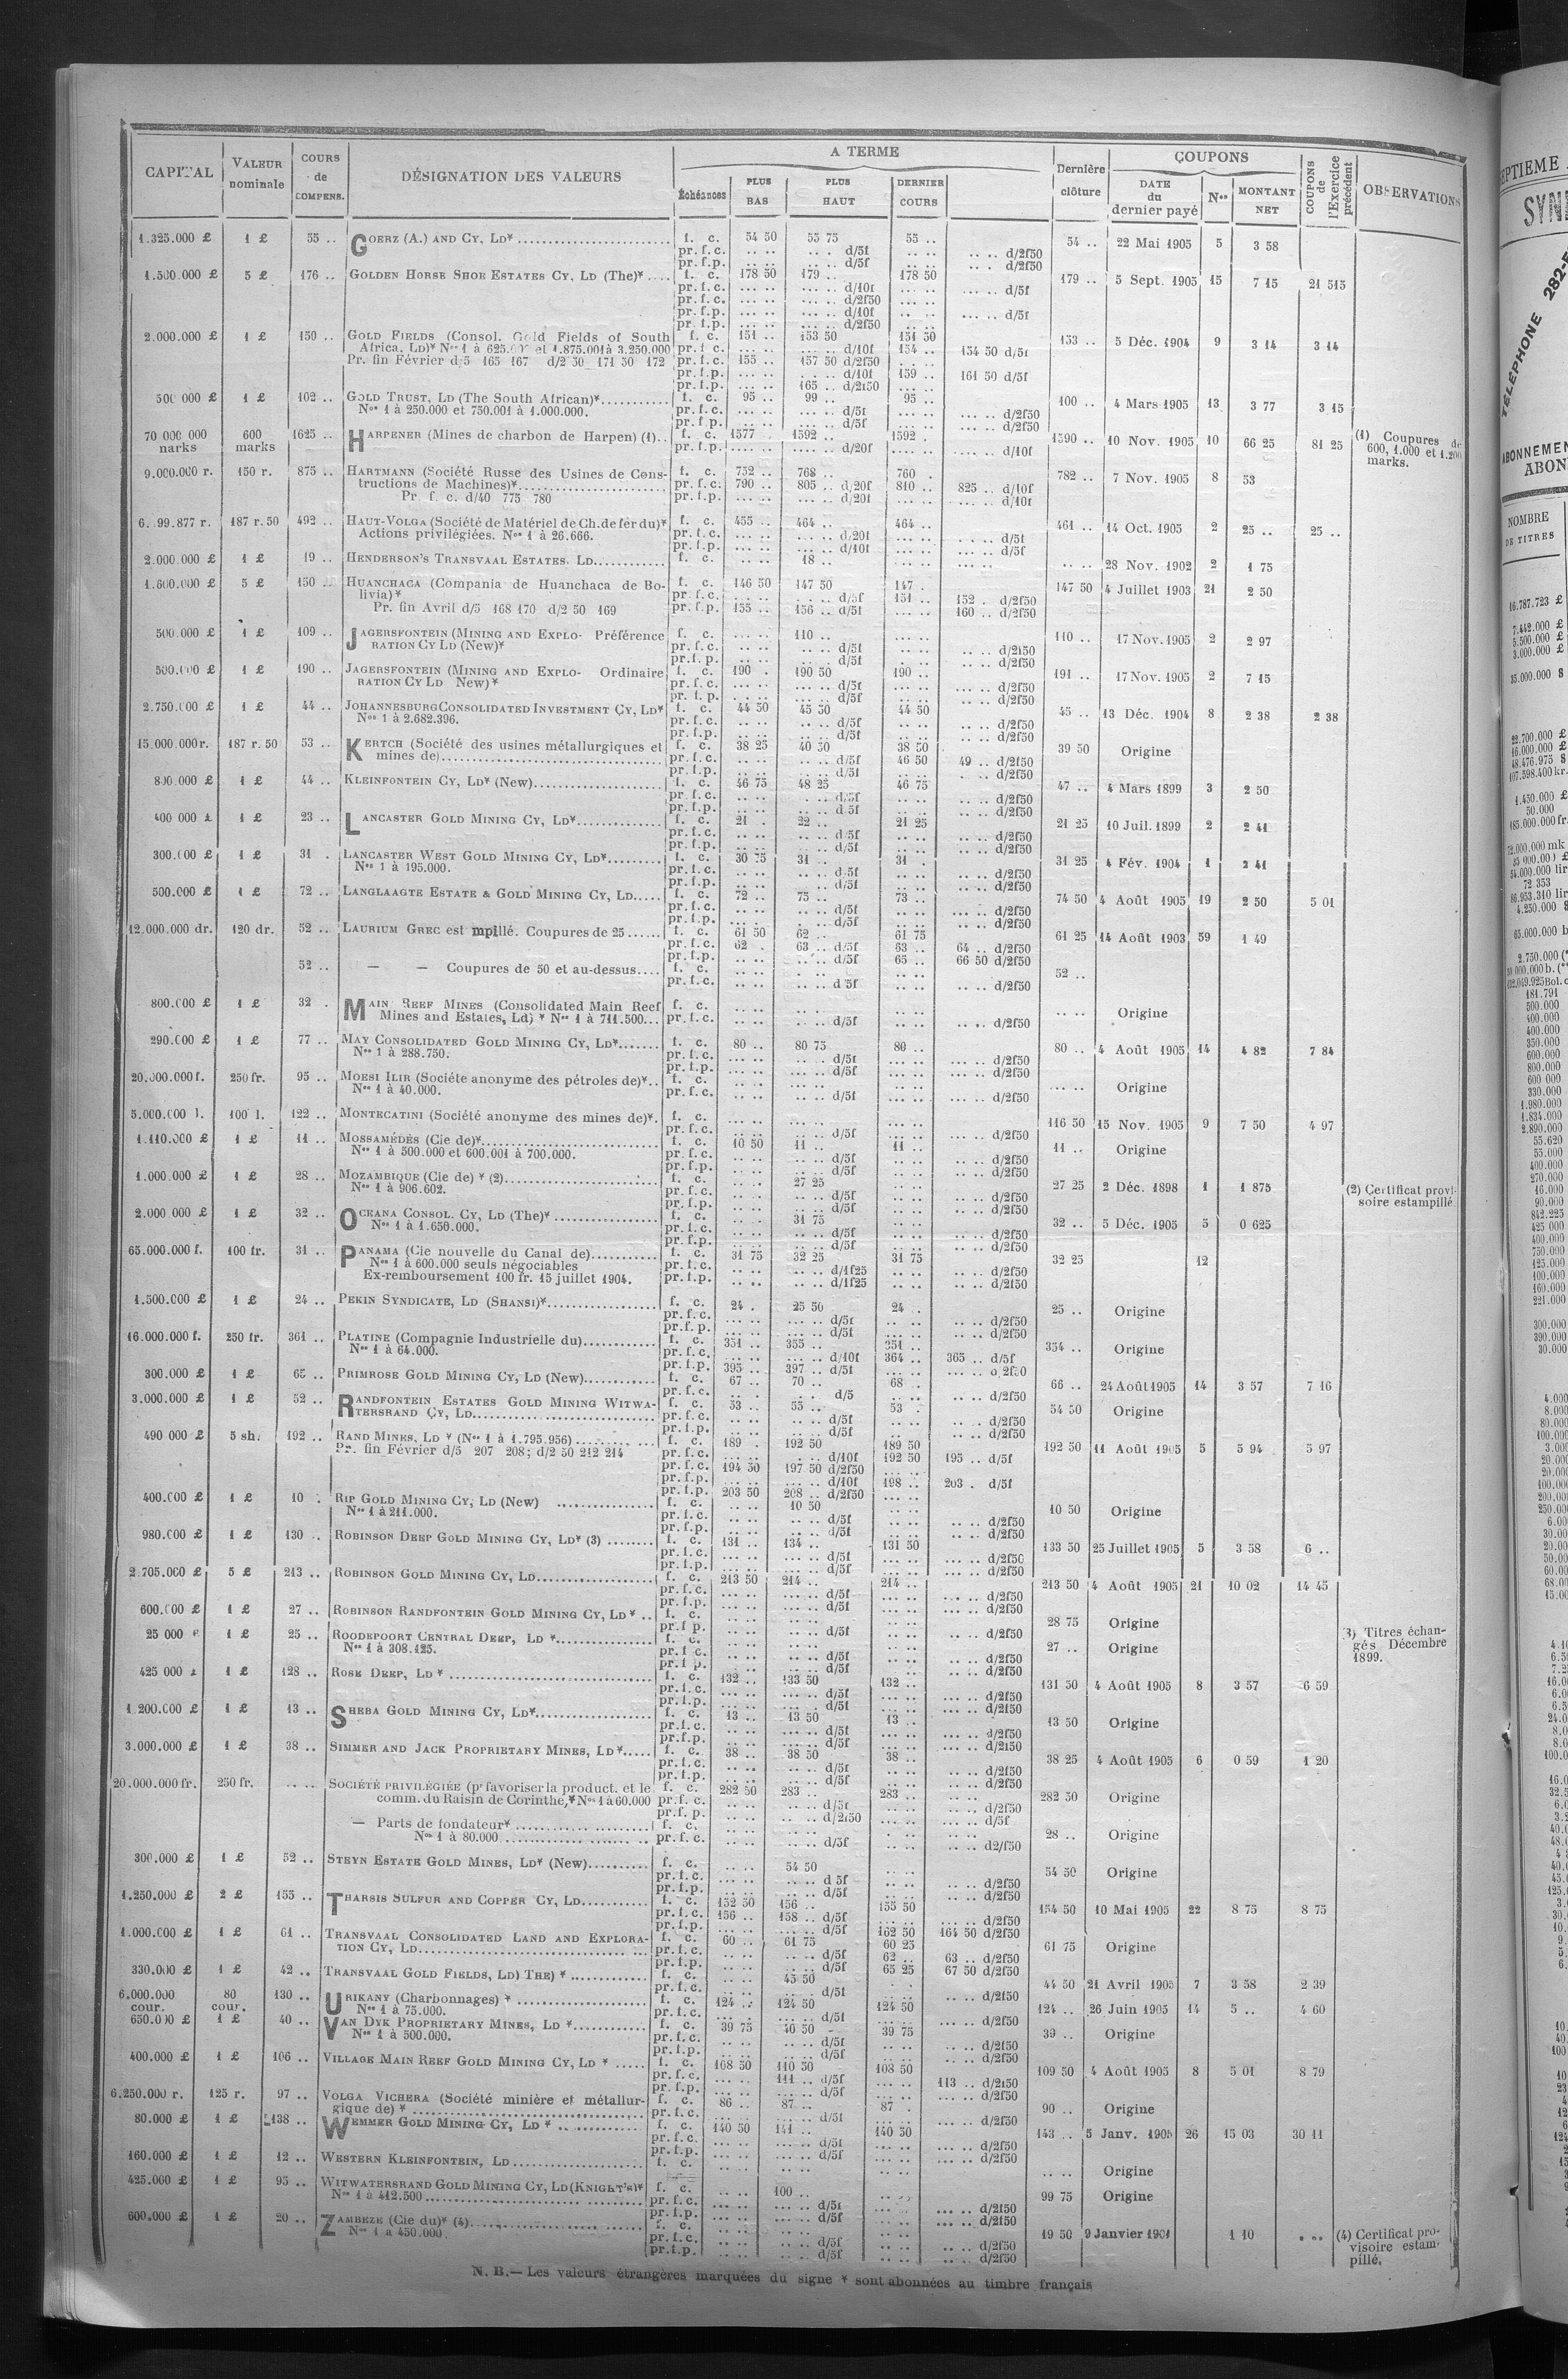 CAPITAL | VALEUR nominale | COURS de COMPENS. | DÉSIGNATION DES VALEURS | A TERME | Dernière clôture | COUPONS | COUPONS de l'Exercice précédent | OBSERVATIONS
Échéances | PLUS BAS | PLUS HAUT | DERNIER COURS | DATE du dernier payé | Nos | MONTANT NET
1.325.000 £ | 1 £ | 55 .. | GOERZ (A.) AND CY, LD* | f. c. | 54 50 | 55 75 | 55 .. | 54 .. | 22 Mai 1905 | 5 | 3 58
pr. f. c. d/5f d/2f50
pr. f. p. d/5f d/2f50
1.500.000 £ | 5 £ | 176 .. | GOLDEN HORSE SHOE ESTATES CY, LD (The)* | f. c. | 178 50 | 179 .. | 178 50 | 179 .. | 5 Sept. 1905 | 15 | 7 15 | 21 515
pr. f. c. d/10f d/5f
pr. f. c. d/2f50
pr. f. p. d/10f d/5f
pr. f. p. d/2f50
2.000.000 £ | 1 £ | 150 .. | GOLD FIELDS (Consol. Gold Fields of South | f. c. | 151 .. | 153 50 | 151 50 | 153 .. | 5 Déc. 1904 | 9 | 3 14 | 3 14
Africa, Ld)* Nos 1 à 625.000 et 1.875.001 à 3.250.000 | pr. f. c. | d/10f | 154 .. | 154 50 d/5f
Pr. fin Février d/5 165 167 d/2 50 171 50 172 | pr. f. c. | 155 .. | 157 50 d/2f50
pr. f. p. d/10f | 159 .. | 161 50 d/5f
pr. f. p. | 165 .. d/2f50
500 000 £ | 1 £ | 102 .. | GOLD TRUST, LD (The South African)* | f. c. | 95 .. | 99 .. | 95 .. | 100 .. | 4 Mars 1905 | 13 | 3 77 | 3 15
Nos 1 à 250.000 et 750.001 à 1.000.000. | pr. f. c. d/5f d/2f50
pr. f. p. d/5f d/2f50
70 000 000 marks | 600 marks | 1625 .. | HARPENER (Mines de charbon de Harpen) (1) | f. c. | 1577 | 1592 .. | 1592 . | 1590 .. | 10 Nov. 1905 | 10 | 66 25 | 81 25 | (1) Coupures de 600, 1.000 et 1.200 marks.
pr. f. p. d/20f d/10f
9.000.000 r. | 150 r. | 875 .. | HARTMANN (Société Russe des Usines de Cons- | f. c. | 752 .. | 768 .. | 760 . | 782 .. | 7 Nov. 1905 | 8 | 53
tructions de Machines)* | pr. f. c. | 790 .. | 805 .. d/20f | 810 .. | 825 .. d/10f
Pr. f. c. d/40 775 780 | pr. f. p. d/20f d/10f
187 r. 50 | 492 .. | HAUT-VOLGA (Société de Matériel de Ch. de fer du)* | f. c. | 455 .. | 464 .. | 464 .. | 461 .. | 14 Oct. 1905 | 2 | 25 .. | 25 ..
Actions privilégiées. Nos 1 à 26.666. | pr. f. c. d/20f d/5f
pr. f. p. d/10f d/5f
2.000.000 £ | 1 £ | 19 .. | HENDERSON'S TRANSVAAL ESTATES, LD | f. c. | 18 .. | 28 Nov. 1902 | 2 | 1 75
1.600.000 £ | 5 £ | 150 .. | HUANCHACA (Compania de Huanchaca de Bo- | f. c. | 146 50 | 147 50 | 147 . | 147 50 | 4 Juillet 1903 | 21 | 2 50
livia)* | pr. f. c. d/5f | 151 .. | 152 . d/2f50
Pr. fin Avril d/5 168 170 d/2 50 169 | pr. f. p. | 155 .. | 156 .. d/5f | 160 .. d/2f50
500.000 £ | 1 £ | 109 .. | JAGERSFONTEIN (MINING AND EXPLO- Préférence | f. c. | 110 .. | 110 .. | 17 Nov. 1905 | 2 | 2 97
RATION CY LD (New)* | pr. f. c. d/5f d/2f50
pr. f. p. d/5f d/2f50
500.000 £ | 1 £ | 190 .. | JAGERSFONTEIN (MINING AND EXPLO- Ordinaire | f. c. | 190 . | 190 50 | 190 .. | 191 .. | 17 Nov. 1905 | 2 | 7 15
RATION CY LD New)* | pr. f. c. d/5f d/2f50
pr. f. p. d/5f d/2f50
2.750.000 £ | 1 £ | 44 .. | JOHANNESBURG CONSOLIDATED INVESTMENT CY, LD* | f. c. | 44 50 | 45 50 | 44 50 | 45 .. | 13 Déc. 1904 | 8 | 2 38 | 2 38
Nos 1 à 2.682.396. | pr. f. c. d/5f d/2f50
pr. f. p. d/5f d/2f50
15.000.000 r. | 187 r. 50 | 53 .. | KERTCH (Société des usines métallurgiques et | f. c. | 38 25 | 40 50 | 38 50 | 39 50 | Origine
mines de) | pr. f. c. d/5f | 46 50 | 49 .. d/2f50
pr. f. p. d/5f d/2f50
800.000 £ | 1 £ | 44 .. | KLEINFONTEIN CY, LD* (New) | f. c. | 46 75 | 48 25 | 46 75 | 47 .. | 4 Mars 1899 | 3 | 2 50
pr. f. c. d/5f d/2f50
pr. f. p. d/5f d/2f50
400 000 £ | 1 £ | 23 .. | LANCASTER GOLD MINING CY, LD* | f. c. | 21 . | 22 .. | 21 25 | 21 25 | 10 Juil. 1899 | 2 | 2 41
pr. f. c. d/5f d/2f50
pr. f. p. d/5f d/2f50
300.000 £ | 1 £ | 31 . | LANCASTER WEST GOLD MINING CY, LD* | f. c. | 30 75 | 31 .. | 31 . | 31 25 | 4 Fév. 1904 | 1 | 2 41
Nos 1 à 195.000. | pr. f. c. d/5f d/2f50
pr. f. p. d/5f d/2f50
500.000 £ | 1 £ | 72 .. | LANGLAAGTE ESTATE & GOLD MINING CY, LD | f. c. | 72 .. | 75 .. | 73 .. | 74 50 | 4 Août 1905 | 19 | 2 50 | 5 01
pr. f. c. d/5f d/2f50
pr. f. p. d/5f d/2f50
12.000.000 dr. | 120 dr. | 52 .. | LAURIUM GREC est mpillé. Coupures de 25 | f. c. | 61 50 | 62 .. | 61 75 | 61 25 | 14 Août 1903 | 59 | 1 49
pr. f. c. | 62 . | 63 .. d/5f | 63 .. | 64 .. d/2f50
pr. f. p. d/5f | 65 .. | 66 50 d/2f50
52 .. | — — Coupures de 50 et au-dessus | f. c. | 52 ..
pr. f. c. d/5f d/2f50
800.000 £ | 1 £ | 32 . | MAIN REEF MINES (Consolidated Main Reef | f. c. | Origine
Mines and Estates, Ld) * Nos 1 à 711.500 | pr. f. c. d/5f d/2f50
290.000 £ | 1 £ | 77 .. | MAY CONSOLIDATED GOLD MINING CY, LD* | f. c. | 80 .. | 80 75 | 80 .. | 80 .. | 4 Août 1905 | 14 | 4 82 | 7 84
Nos 1 à 288.750. | pr. f. c. d/5f d/2f50
pr. f. p. d/5f d/2f50
20.000.000 f. | 250 fr. | 95 .. | MOESI ILIR (Société anonyme des pétroles de)* | f. c. | Origine
Nos 1 à 40.000. | pr. f. c. d/5f d/2f50
5.000.000 l. | 100 l. | 122 .. | MONTECATINI (Société anonyme des mines de)* | f. c. | 116 50 | 15 Nov. 1905 | 9 | 7 50 | 4 97
pr. f. c. d/5f d/2f50
1.110.000 £ | 1 £ | 11 .. | MOSSAMÉDÈS (Cie de)* | f. c. | 10 50 | 11 .. | 11 .. | 11 .. | Origine
Nos 1 à 500.000 et 600.001 à 700.000. | pr. f. c. d/5f d/2f50
pr. f. p. d/5f d/2f50
1.000.000 £ | 1 £ | 28 .. | MOZAMBIQUE (Cie de) * (2) | f. c. | 27 25 | 27 25 | 2 Déc. 1898 | 1 | 1 875 | (2) Certificat provisoire estampillé.
Nos 1 à 906.602. | pr. f. c. d/5f d/2f50
pr. f. p. d/5f d/2f50
2.000.000 £ | 1 £ | 32 .. | OCEANA CONSOL. CY, LD (The)* | f. c. | 31 75 | 32 .. | 5 Déc. 1905 | 5 | 0 625
Nos 1 à 1.650.000. | pr. f. c. d/5f d/2f50
pr. f. p. d/5f d/2f50
65.000.000 f. | 100 fr. | 31 .. | PANAMA (Cie nouvelle du Canal de) | f. c. | 31 75 | 32 25 | 31 75 | 32 25 | 12
Nos 1 à 600.000 seuls négociables | pr. f. c. d/1f25 d/2f50
Ex-remboursement 100 fr. 15 juillet 1904. | pr. f. p. d/1f25 d/2f50
1.500.000 £ | 1 £ | 24 .. | PEKIN SYNDICATE, LD (SHANSI)* | f. c. | 24 . | 25 50 | 24 .. | 25 .. | Origine
pr. f. c. d/5f d/2f50
pr. f. p. d/5f d/2f50
16.000.000 f. | 250 fr. | 361 .. | PLATINE (Compagnie Industrielle du) | f. c. | 351 .. | 355 .. | 351 .. | 354 .. | Origine
Nos 1 à 64.000. | pr. f. c. d/10f | 364 .. | 365 .. d/5f
pr. f. p. | 395 .. | 397 .. d/5f | d/2f50
300.000 £ | 1 £ | 65 .. | PRIMROSE GOLD MINING CY, LD (New) | f. c. | 67 .. | 70 .. | 68 . | 66 .. | 24 Août 1905 | 14 | 3 57 | 7 16
pr. f. c. d/5 d/2f50
3.000.000 £ | 1 £ | 52 .. | RANDFONTEIN ESTATES GOLD MINING WITWA- | f. c. | 53 .. | 55 .. | 53 . | 54 50 | Origine
TERSRAND CY, LD | pr. f. c. d/5f d/2f50
pr. f. p. d/5f d/2f50
490 000 £ | 5 sh. | 192 .. | RAND MINES, LD * (Nos 1 à 1.795.956) | f. c. | 189 . | 192 50 | 189 50 | 192 50 | 11 Août 1905 | 5 | 5 94 | 5 97
Pr. fin Février d/5 207 208; d/2 50 212 214 | pr. f. c. d/10f | 192 50 | 195 .. d/5f
pr. f. c. | 194 50 | 197 50 d/2f50
pr. f. p. d/10f | 198 .. | 203 . d/5f
pr. f. p. | 203 50 | 208 .. d/2f50
400.000 £ | 1 £ | 10 . | RIP GOLD MINING CY, LD (New) | f. c. | 10 50 | 10 50 | Origine
Nos 1 à 211.000. | pr. f. c. d/5f d/2f50
pr. f. p. d/5f d/2f50
980.000 £ | 1 £ | 130 .. | ROBINSON DEEP GOLD MINING CY, LD* (3) | f. c. | 131 .. | 134 .. | 131 50 | 133 50 | 25 Juillet 1905 | 5 | 3 58 | 6 ..
pr. f. c. d/5f d/2f50
pr. f. p. d/5f d/2f50
2.705.000 £ | 5 £ | 213 .. | ROBINSON GOLD MINING CY, LD | f. c. | 213 50 | 214 .. | 214 .. | 213 50 | 4 Août 1905 | 21 | 10 02 | 14 45
pr. f. c. d/5f d/2f50
pr. f. p. d/5f d/2f50
600.000 £ | 1 £ | 27 .. | ROBINSON RANDFONTEIN GOLD MINING CY, LD * | f. c. | 28 75 | Origine
pr. f. p. d/5f d/2f50
25 000 £ | 1 £ | 25 .. | ROODEPOORT CENTRAL DEEP, LD * | f. c. | 27 .. | Origine | (3) Titres échangés Décembre 1899.
Nos 1 à 308.125. | pr. f. c. d/5f d/2f50
pr. f. p. d/5f d/2f50
425 000 £ | 1 £ | 128 .. | ROSE DEEP, LD * | f. c. | 132 .. | 133 50 | 132 .. | 131 50 | 4 Août 1905 | 8 | 3 57 | 6 59
pr. f. c. d/5f d/2f50
pr. f. p. d/5f d/2f50
1.200.000 £ | 1 £ | 13 .. | SHEBA GOLD MINING CY, LD* | f. c. | 13 .. | 13 50 | 13 .. | 13 50 | Origine
pr. f. c. d/5f d/2f50
pr. f. p. d/5f d/2f50
3.000.000 £ | 1 £ | 38 .. | SIMMER AND JACK PROPRIETARY MINES, LD* | f. c. | 38 .. | 38 50 | 38 .. | 38 25 | 4 Août 1905 | 6 | 0 59 | 1 20
pr. f. c. d/5f d/2f50
pr. f. p. d/5f d/2f50
20.000.000 fr. | 250 fr. | SOCIÉTÉ PRIVILÉGIÉE (pr favoriser la product. et le | f. c. | 282 50 | 283 .. | 283 .. | 282 50 | Origine
comm. du Raisin de Corinthe,* Nos 1 à 60.000 | pr. f. c. d/5f d/2f50
pr. f. p. d/2f50 d/5f
— Parts de fondateur* | f. c. | 28 .. | Origine
Nos 1 à 80.000 | pr. f. c. d/5f d2/f50
300.000 £ | 1 £ | 52 .. | STEYN ESTATE GOLD MINES, LD* (New) | f. c. | 54 50 | 54 50 | Origine
pr. f. c. d 5f d/2f50
pr. f. p. d/5f d/2f50
1.250.000 £ | 2 £ | 155 .. | THARSIS SULFUR AND COPPER CY, LD | f. c. | 152 50 | 156 .. | 155 50 | 154 50 | 10 Mai 1905 | 22 | 8 75 | 8 75
pr. f. c. | 156 .. | 158 .. d/5f | d/2f50
pr. f. p. d/5f | 162 50 | 164 50 d/2f50
1.000.000 £ | 1 £ | 61 .. | TRANSVAAL CONSOLIDATED LAND AND EXPLORA- | f. c. | 60 .. | 61 75 | 60 25 | 61 75 | Origine
TION CY, LD | pr. f. c. d/5f | 62 .. | 63 .. d/2f50
pr. f. p. d/5f | 65 25 | 67 50 d/2f50
330.000 £ | 1 £ | 42 .. | TRANSVAAL GOLD FIELDS, LD) THE) * | f. c. | 45 50 | 44 50 | 21 Avril 1905 | 7 | 3 58 | 2 39
pr. f. c. d/5f d/2f50
6.000.000 cour. | 80 cour. | 130 .. | URIKANY (Charbonnages) * | f. c. | 124 .. | 124 50 | 124 50 | 124 .. | 26 Juin 1905 | 14 | 5 .. | 4 60
Nos 1 à 75.000. | pr. f. c. d/5f d/2f50
650.000 £ | 1 £ | 40 .. | VAN DYK PROPRIETARY MINES, LD * | f. c. | 39 75 | 40 50 | 39 75 | 39 .. | Origine
Nos 1 à 500.000. | pr. f. c. d/5f d/2f50
pr. f. p. d/5f d/2f50
400.000 £ | 1 £ | 106 .. | VILLAGE MAIN REEF GOLD MINING CY, LD * | f. c. | 108 50 | 110 50 | 108 50 | 109 50 | 4 Août 1905 | 8 | 5 01 | 8 79
pr. f. c. | 111 .. d/5f | 113 .. d/2f50
pr. f. p. d/5f d/2f50
6.250.000 r. | 125 r. | 97 .. | VOLGA VICHERA (Société minière et métallur- | f. c. | 86 .. | 87 .. | 87 . | 90 .. | Origine
gique de) * | pr. f. c. d/5f d/2f50
80.000 £ | 1 £ | 138 .. | WEMMER GOLD MINING CY, LD * | f. c. | 140 50 | 141 .. | 140 50 | 143 .. | 5 Janv. 1905 | 26 | 15 03 | 30 11
pr. f. c. d/5f d/2f50
pr. f. p. d/5f d/2f50
160.000 £ | 1 £ | 12 .. | WESTERN KLEINFONTEIN, LD | f. c. | Origine
425.000 £ | 1 £ | 95 .. | WITWATERSRAND GOLD MINING CY, LD (KNIGHT'S)* | f. c. | 100 .. | 99 75 | Origine
Nos 1 à 412.500 | pr. f. c. d/5f d/2f50
pr. f. p. d/5f d/2f50
600.000 £ | 1 £ | 20 .. | ZAMBEZE (Cie du)* (4) | f. c. | 19 50 | 9 Janvier 1901 | 1 10 | (4) Certificat provisoire estampillé.
Nos 1 à 450.000. | pr. f. c. d/5f d/2f50
pr. f. p. d/5f d/2f50
N. B. — Les valeurs étrangères marquées du signe * sont abonnées au timbre français
TÉLÉPHONE 282-5
NOMBRE
DE TITRES